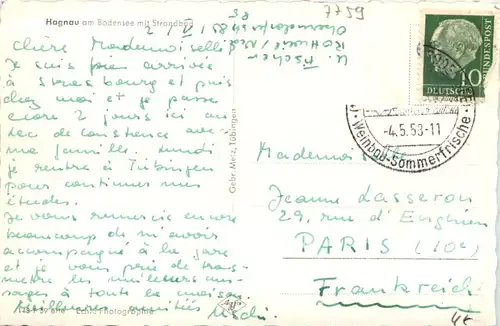 Hagnau am Bodensee mit Strandbad
7759
2/V/58
U. Fischer
Chère Mademoiselle,
Je suis bien arrivée
à Strasbourg et puis
chez moi et je passe
encore 2 jours ici au
Lac de Constance avec
ma famille. Lundi
je rentre à Tübingen
pour continuer mes
études.
Je vous remercie encore
beaucoup de m'avoir
accompagné à la gare
et je vous prie de trans-
mettre les meilleurs mes-
sages à toute la maison.
Meilleures amitiés
Uschi
Echte Photographie
Gebr. Metz, Tübingen
DEUTSCHE BUNDESPOST
10
-4.5.58-11
Weinbau-Sommerfrische
Mademoiselle
Jeanne Lasseron
29, rue d'Enghien
PARIS (10e)
Frankreich